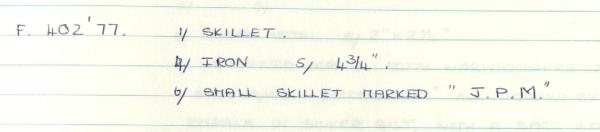 F. 402'77. 1/ SKILLET.
4/ IRON 5/ 4¾".
6/ SMALL SKILLET MARKED "J.P.M."